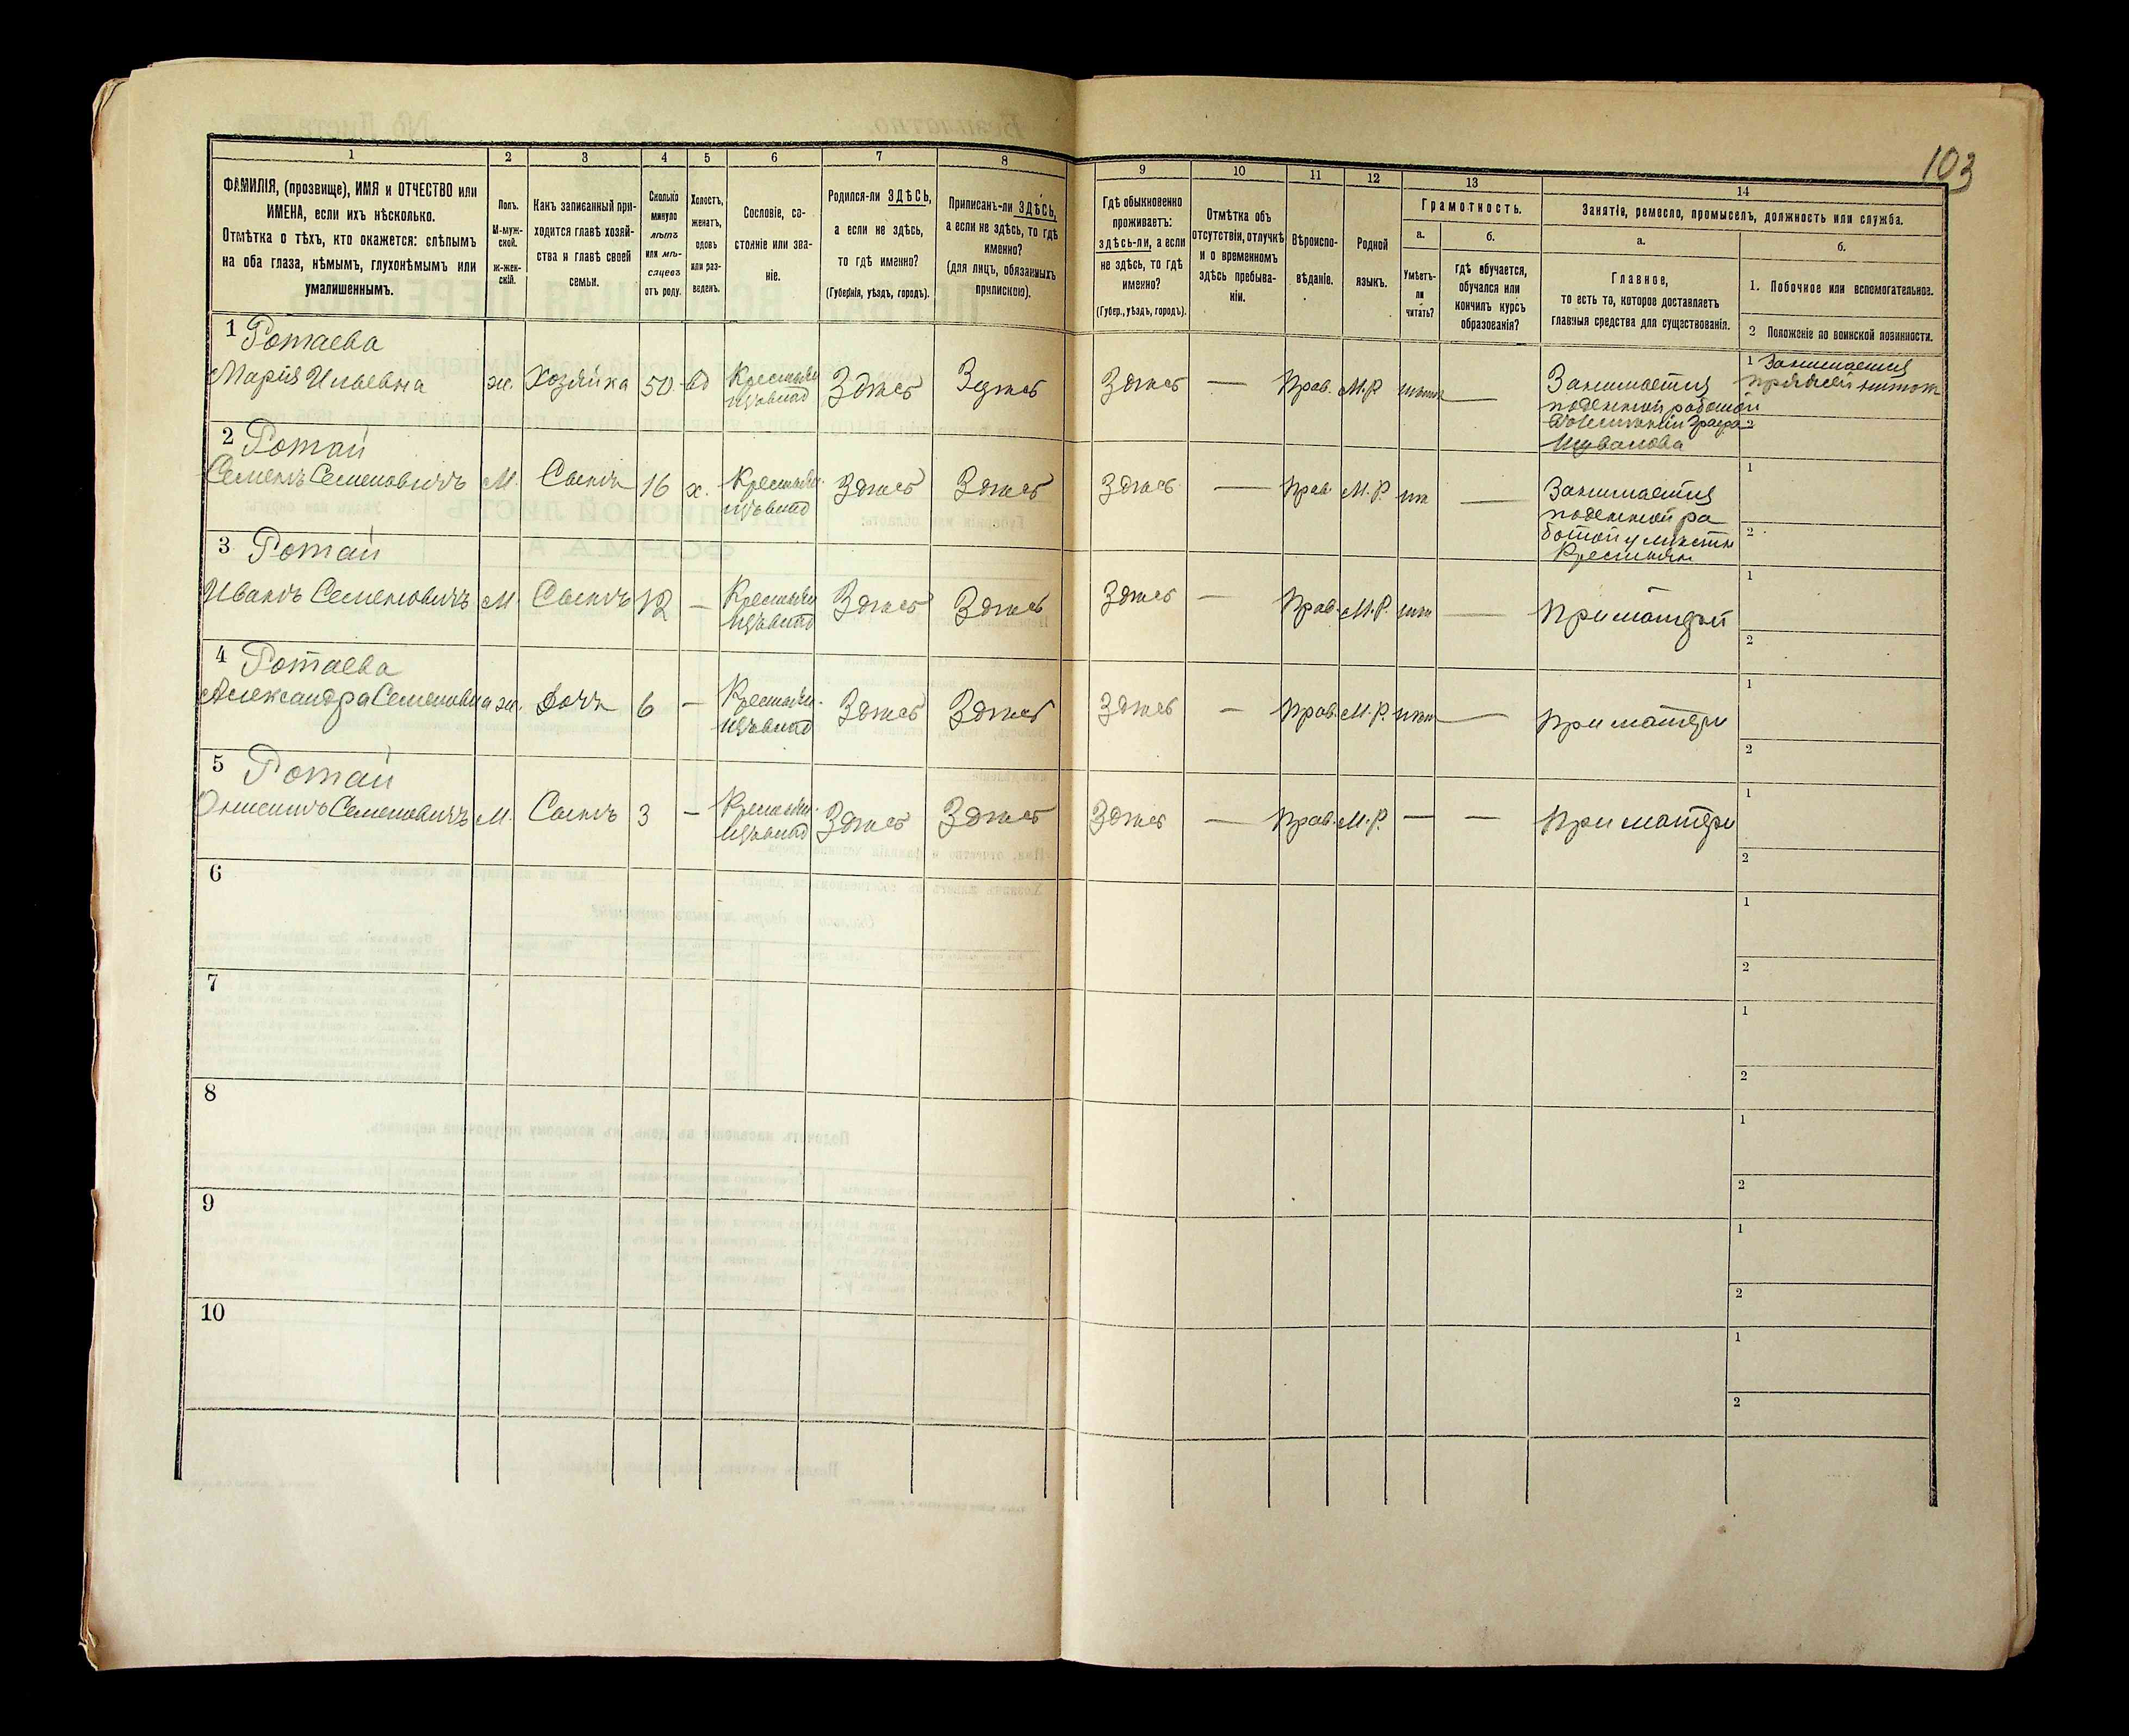 103
1 2 3 4 5 6 7 8 9 10 11 12 13 14
ФАМИЛІЯ, (прозвище), ИМЯ и ОТЧЕСТВО или
ИМЕНА, если ихъ нѣсколько.
Отмѣтка о тѣхъ, кто окажется: слѣпымъ
на оба глаза, нѣмымъ, глухонѣмымъ или
умалишеннымъ.
Полъ.
М-муж-
ской.
ж-жен-
скій.
Какъ записанный при-
ходится главѣ хозяй-
ства и главѣ своей
семьи.
Сколько
минуло
лѣтъ
или мѣ-
сяцевъ
отъ роду.
Холостъ,
женатъ,
вдовъ
или раз-
веденъ.
Сословіе, со-
стояніе или зва-
ніе.
Родился-ли ЗДѢСЬ,
а если не здѣсь,
то гдѣ именно?
(Губернія, уѣздъ, городъ).
Приписанъ-ли ЗДѢСЬ,
а если не здѣсь, то гдѣ
именно?
(для лицъ, обязанныхъ
припискою).
Гдѣ обыкновенно
проживаетъ:
здѣсь-ли, а если
не здѣсь, то гдѣ
именно?
(Губер., уѣздъ, городъ).
Отмѣтка объ
отсутствіи, отлучкѣ
и о временномъ
здѣсь пребыва-
ніи.
Вѣроиспо-
вѣданіе.
Родной
языкъ.
Грамотность.
а.
Умѣетъ-
ли
читать?
б.
гдѣ обучается,
обучался или
кончилъ курсъ
образованія?
Занятіе, ремесло, промыселъ, должность или служба.
а.
Главное,
то есть то, которое доставляетъ
главныя средства для существованія.
б.
1. Побочное или вспомогательное.
2 Положеніе по воинской повинности.
1 Ротаева
Марія Ильевна ж. Хозяйка 50 вд Крестьян. Здѣсь Здѣсь Здѣсь — Прав. М.Р. — Занимается
поденной работой
Графа
Шувалова
1 Занимается
пряжей ниток
2
2 Ротай
Семенъ Семеновичъ М. Сынъ 16 х. Крестьян. Здѣсь Здѣсь Здѣсь — Прав. М.Р. — Занимается
поденной ра
ботой у мѣстн
Крестьян
1
2
3 Ротай
Иванъ Семеновичъ М Сынъ 12 — Крестьян. Здѣсь Здѣсь Здѣсь — Прав. М.Р. — При матери
1
2
4 Ротаева
Александра Семеновна ж. Дочь 6 — Крестьян. Здѣсь Здѣсь Здѣсь — Прав. М.Р. — При матери
1
2
5 Ротай
Онисимъ Семеновичъ М. Сынъ 3 — Крестьян. Здѣсь Здѣсь Здѣсь — Прав. М.Р. — — При матери
1
2
6
1
2
7
1
2
8
1
2
9
1
2
10
1
2